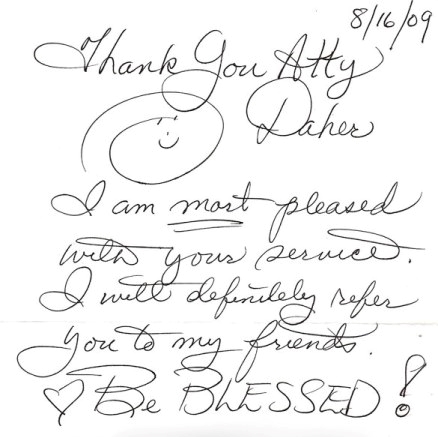 8/16/09
Thank You Atty
Daher
I am most pleased
with your service.
I will definitely refer
you to my friends.
Be BLESSED!